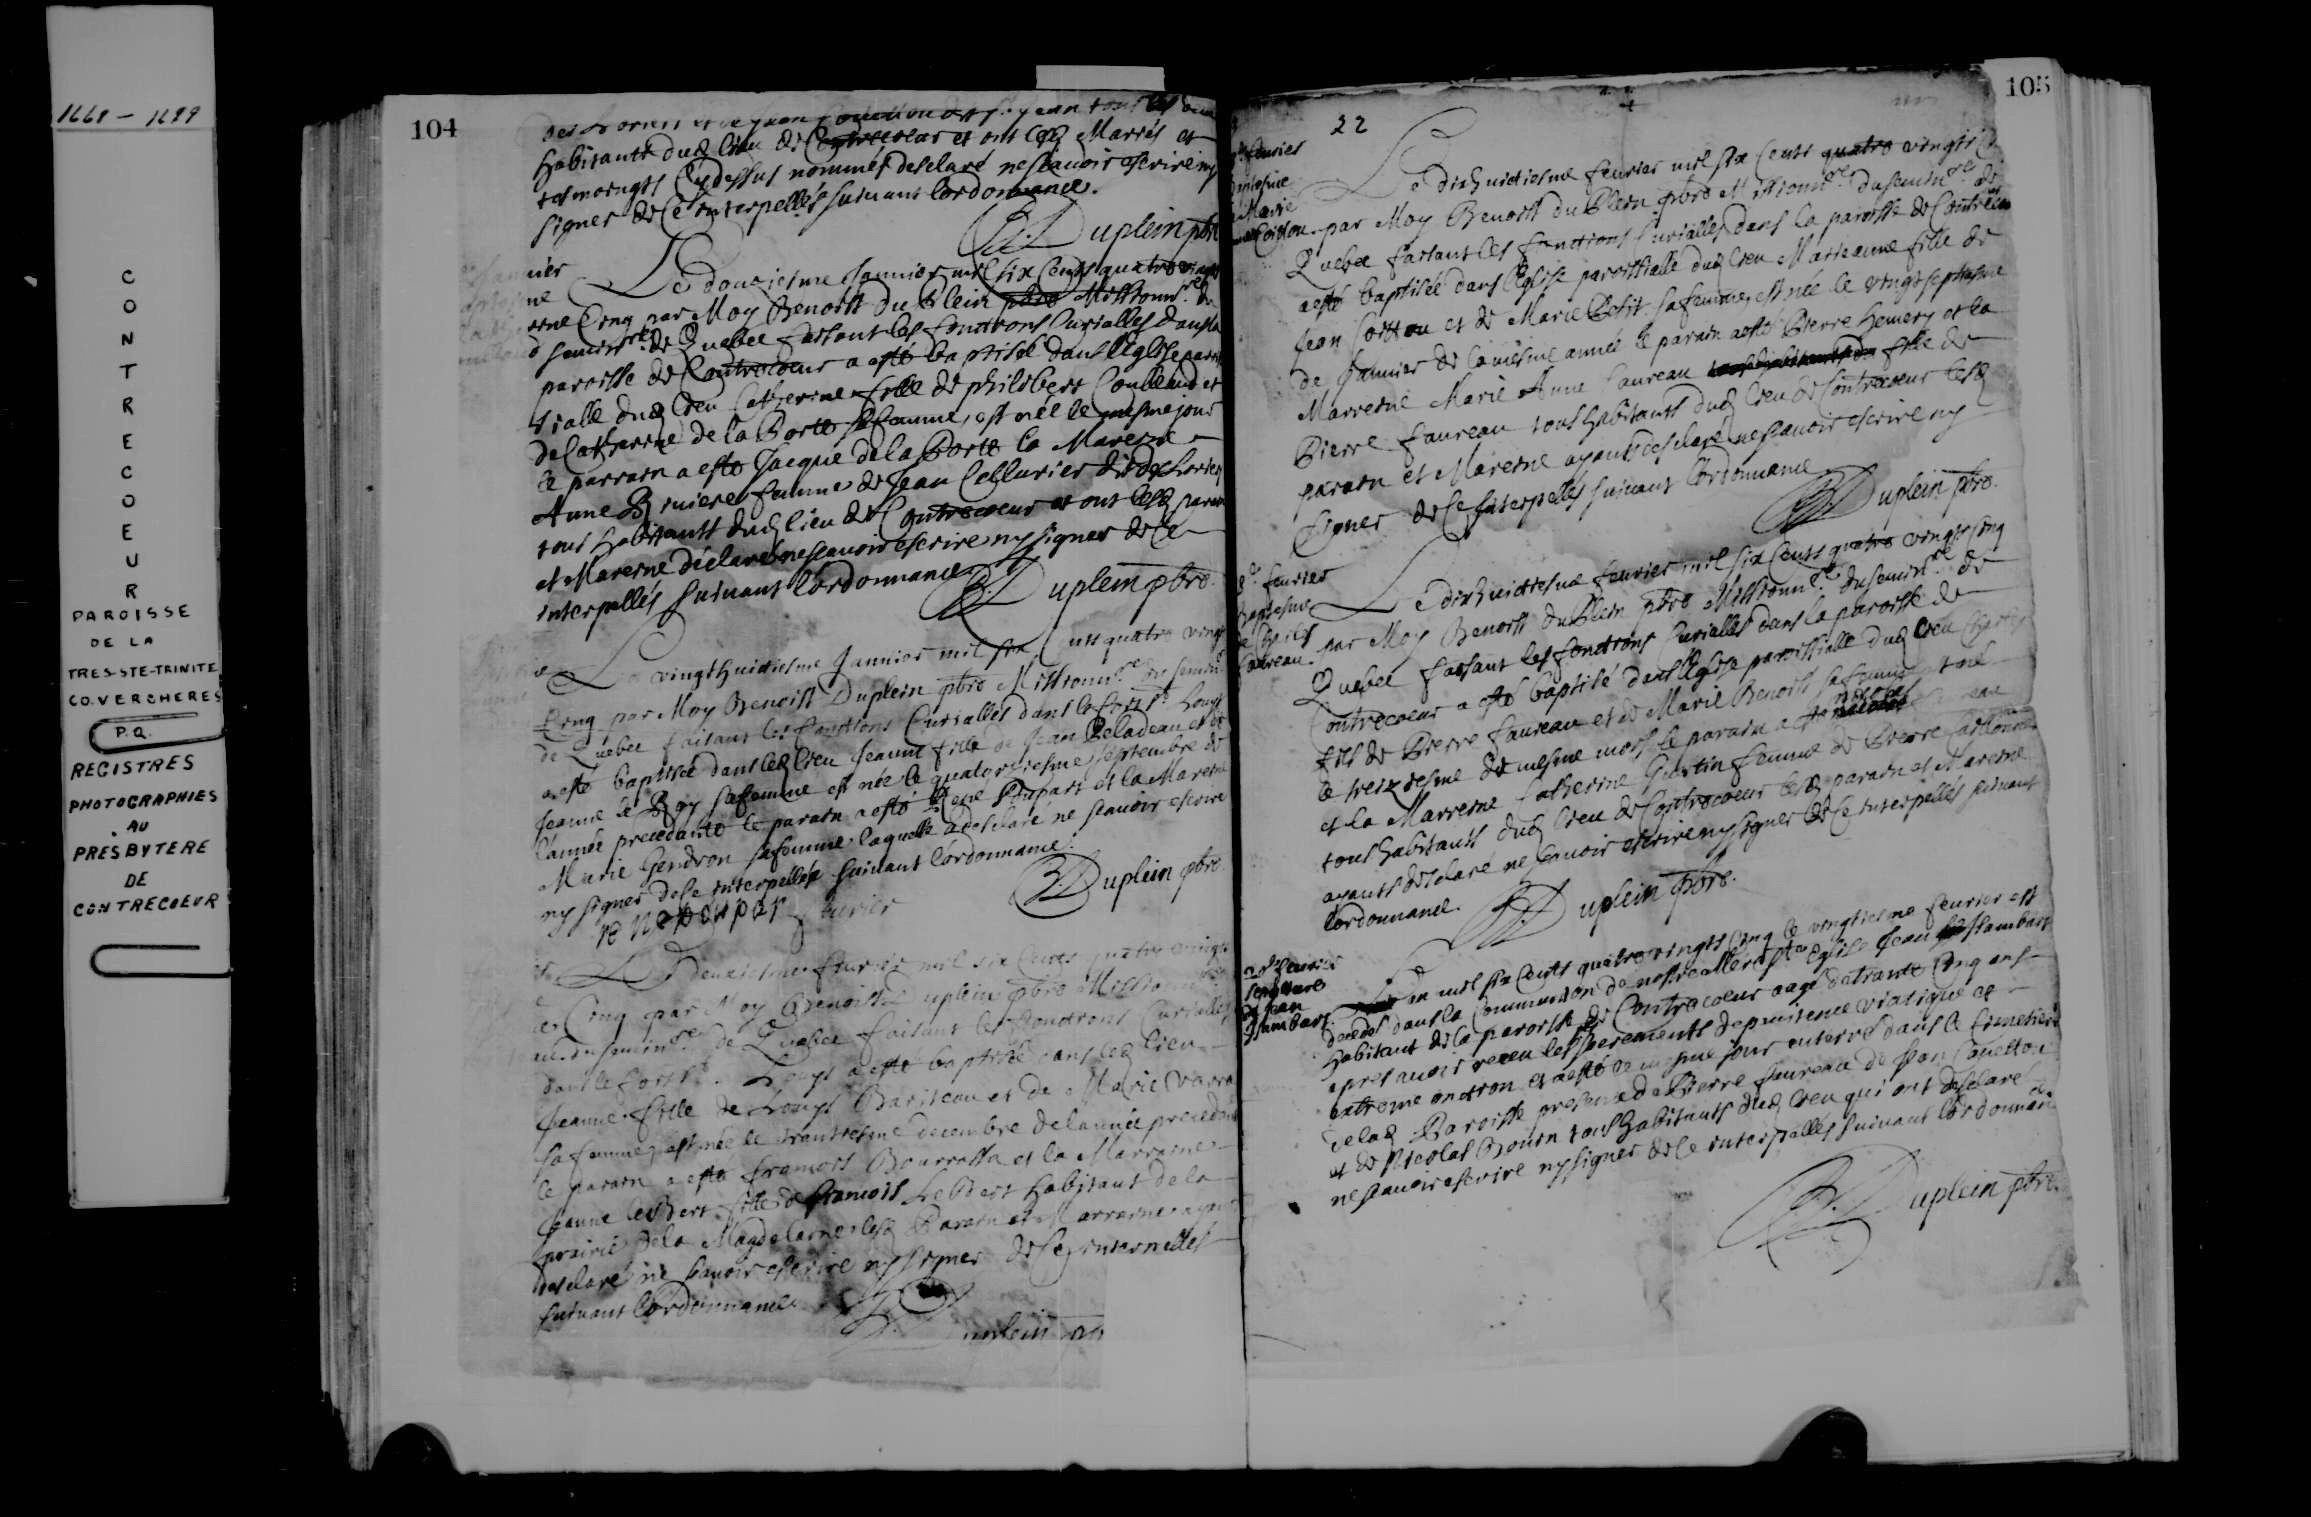 1668 - 1699
C
O
N
T
R
E
C
O
E
U
R
PAROISSE
DE LA
TRES-STE-TRINITE
CO. VERCHERES
P.Q.
REGISTRES
PHOTOGRAPHIES
AU
PRESBYTERE
DE
CONTRECOEUR
104
habitants dud lieu de Contrecoeur et ont lesd Mariés et
tesmoingts Cy dessus nommés desclaré ne scavoir escrire ny
signer de Ce interpellés suivant l'ordonnance.
B. Duplein pbre
Le douziesme Janvier mil six Cents quatre vingts
Cinq par Moy Benoist Du Plein pbre Missionnre du
seminre de Quebec faisant les fonctions Curialles dans la
paroisse de Contrecoeur a esté baptisée dans l'Eglise parois
sialle dud lieu Catherine fille de philibert Couillaud et
de Catherine de la Porte sa femme, est née le mesme jour
le parrain a esté Jacque de la Porte la Mareine
Anne Bruniere femme de Jean Cellurier dit des Loriers
tous habitants dud lieu de Contrecoeur et ont lesd parain
et Mareine déclaré ne scavoir escrire ny signer de Ce
interpellés suivant l'ordonnance.
B. Duplein pbre.
Le vingthuictiesme Janvier mil six Cents quatre vingts
Cinq par Moy Benoist Duplein pbre Missionnre du seminre
de Quebec faisant les fonctions Curialles dans le fort St Louys
a esté baptisée dans led lieu Jeanne fille de Jean Beladeau et de
Jeanne le Roy sa femme est née le quatorziesme septembre de
l'année precedante le parain a esté René Dupart et la Mareine
Marie Gendron sa femme laquelle a desclaré ne scavoir escrire
ny signer de Ce interpellée suivant l'ordonnance.
B. Duplein pbre.
Le Deuxiesme feuvrier mil six Cents quatre vingts
Cinq par Moy Benoist Duplein pbre Missionnre
du seminre de Quebec faisant les fonctions Curialles
dans le fort St. Louys a esté baptisée dans led lieu
Jeanne fille de Louys Bariteau et de Marie Varra
sa femme, est née le trentiesme decembre de l'année precedente
le parain a esté francois Bourrassa et la Marraine
Jeanne le Bert fille de francois le Bert habitant de la
prairie de la Magdelaine lesd Parain et Marraine ayant
desclaré ne scavoir escrire ny signer de Ce interpellés
suivant l'ordonnance.
B. Duplein pbr
105
22
Le dixhuictiesme feuvrier mil six Cents quatre vingts Cinq
par Moy Benoist Du Plein pbre Missionnre du seminre de
Quebec faisant les fonctions Curialles dans la paroisse de Contrecoeur
a esté baptisée dans l'Eglise paroissialle dud lieu Marieanne fille de
Jean Coitton et de Marie Petit sa femme, est née le vingt septiesme
de Janvier de la mesme année le parain a esté Pierre Hemery et la
Marreine Marie Anne faureau fille de
Pierre faureau tous habitants dud lieu de Contrecoeur lesd
parain et Mareine ayants desclaré ne scavoir escrire ny
signer de Ce interpellés suivant l'ordonnance
B. Duplein pbre.
18e feuvrier
baptesme
de Charles
faureau.
Le dixhuictiesme feuvrier mil six Cents quatre vingts Cinq
par Moy Benoist Du Plein pbre Missionnre du seminre de
Quebec faisant les fonctions Curialles dans la paroisse de
Contrecoeur a esté baptisé dans l'Eglise paroissialle dud lieu Charles
fils de Pierre faureau et de Marie Benoist sa femme est né
le treiziesme du mesme mois le parain a esté nicolas
et la Marreine Catherine Guertin femme de Pierre
tous habitants dud lieu de Contrecoeur lesd parain et Mareine
ayants desclaré ne scavoir escrire ny signer de Ce interpellés suivant
l'ordonnance.
B. Duplein pbre.
20e feuvrier
sepulture
de Jean
Jsambart.
L'an mil six Cents quatre vingts Cinq le vingtiesme feuvrier est
decedé dans la Communion de nostre mere ste Eglise Jean Jsambart
habitant de la paroisse de Contrecoeur aagé de trante Cinq ans
apres avoir receu les sacrements de penitence viatique et
extreme onction et a esté le mesme jour enterré dans le Cimetiere
de lad Paroisse presence de Pierre faureau de Jean Couetton
et de Nicolas Bonin tous habitants dud lieu qui ont desclaré
ne scavoir escrire ny signer de Ce interpellés suivant l'ordonnance
B. Duplein pbre.